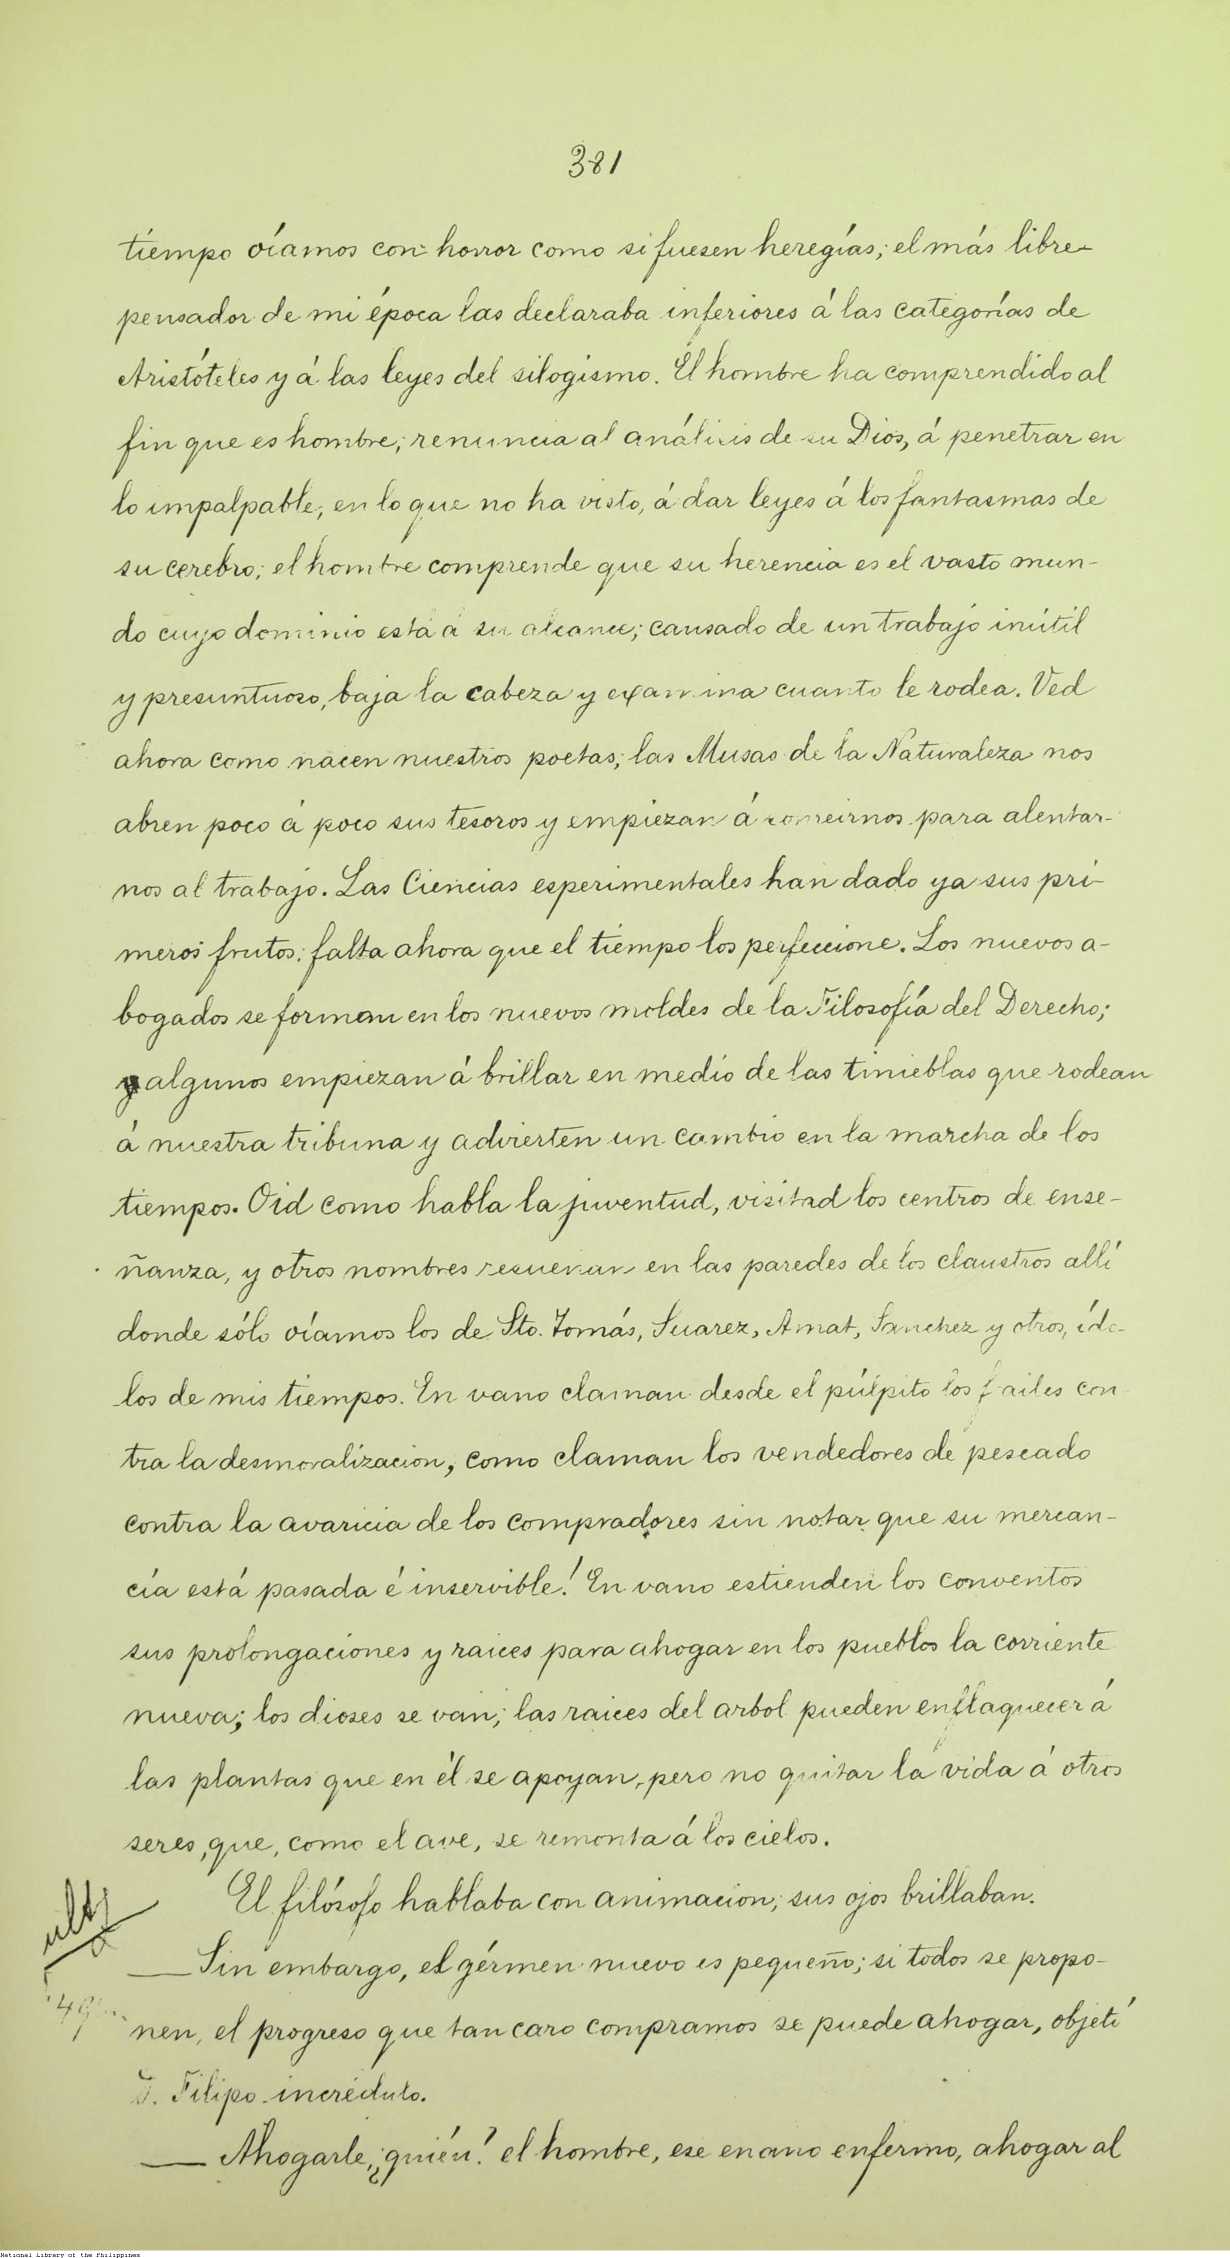 381
tiempo oíamos con horror como si fuesen heregías; el más libre-
pensador de mi época las declaraba inferiores á las categorías de
Aristóteles y á las leyes del silogismo. El hombre ha comprendido al
fin que es hombre; renuncia al análisis de su Dios, á penetrar en
lo impalpable, en lo que no ha visto, á dar leyes á los fantasmas de
su cerebro; el hombre comprende que su herencia es el vasto mun-
do cuyo dominio está á su alcance; cansado de un trabajo inútil
y presuntuoso, baja la cabeza y examina cuanto le rodea. Ved
ahora como nacen nuestros poetas; las Musas de la Naturaleza nos
abren poco á poco sus tesoros y empiezan á sonreirnos para alentar-
nos al trabajo. Las Ciencias esperimentales han dado ya sus pri-
meros frutos; falta ahora que el tiempo los perfeccione. Los nuevos a-
bogados se forman en los nuevos moldes de la Filosofía del Derecho;
y algunos empiezan á brillar en medio de las tinieblas que rodean
á nuestra tribuna y advierten un cambio en la marcha de los
tiempos. Oid como habla la juventud, visitad los centros de ense-
ñanza, y otros nombres resuenan en las paredes de los claustros allí
donde sólo oíamos los de Sto. Tomás, Suarez, Amat, Sanchez y otros, ído-
los de mis tiempos. En vano claman desde el púlpito los frailes con
tra la desmoralizacion, como claman los vendedores de pescado
contra la avaricia de los compradores sin notar que su mercan-
cía está pasada é inservible! En vano estienden los conventos
sus prolongaciones y raices para ahogar en los pueblos la corriente
nueva; los dioses se van; las raices del arbol pueden enflaquecer á
las plantas que en él se apoyan, pero no quitar la vida á otros
seres, que, como el ave, se remonta á los cielos.
El filósofo hablaba con animacion; sus ojos brillaban.
— Sin embargo, el gérmen nuevo es pequeño; si todos se propo-
nen, el progreso que tan caro compramos se puede ahogar, objetó
D. Filipo incrédulo.
— Ahogarle, ¿quién? el hombre, ese enano enfermo, ahogar al
National Library of the Philippines